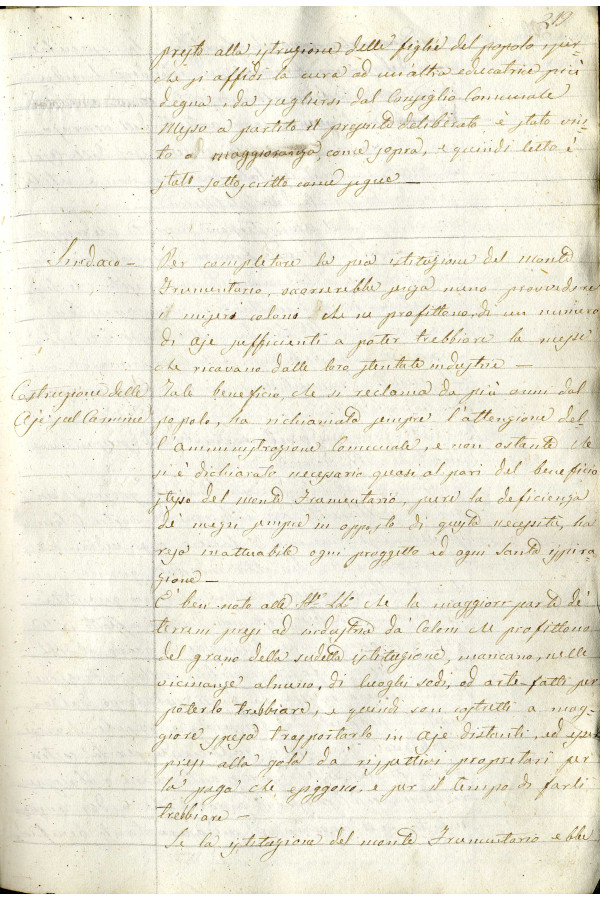 presto alla istruzione delle figlie del popolo, pur-
chè si affidi la cura ad un'altra educatrice più
degna, da scegliersi dal Consiglio Comunale
Messo a partito il proposto deliberato è stato vin-
to a maggioranza, come sopra, e quindi letto è
stato sottoscritto come segue —
Sindaco —
Per completare la pia istituzione del monte
Frumentario, occorrerebbe senza meno provvedere
il misero colono che ne profittono, di un numero
di aje sufficienti a poter trebbiare la messe
che ricavano dalle loro stentate industrie —
Costruzione delle
Aje sul Carmine
Tale beneficio, che si reclama da più anni dal
popolo, ha richiamato sempre l'attenzione del-
l'amministrazione Comunale, e non ostante che
si è dichiarato necessario quasi al pari del beneficio
stesso del monte Frumentario, pure la deficienza
de' mezzi sempre in opposto di questa necessità, ha
reso inattuabile ogni proggetto ed ogni santa ispira-
zione —
È ben noto alle che la maggior parte de'
terreni presi ad industria da' Coloni che profittono
del grano della sudetta istituzione, mancano, nelle
vicinanze almeno, di luoghi sodi, od arte-fatti per
poterlo trebbiare, e quindi son costretti a mag-
giore spesa trapportarlo in aje distanti, ed esser
presi alla gola da' rispettivi proprietari per
la paga che esiggono, e per il tempo di farli
trebbiare —
Se la istituzione del monte Frumentario ebbe